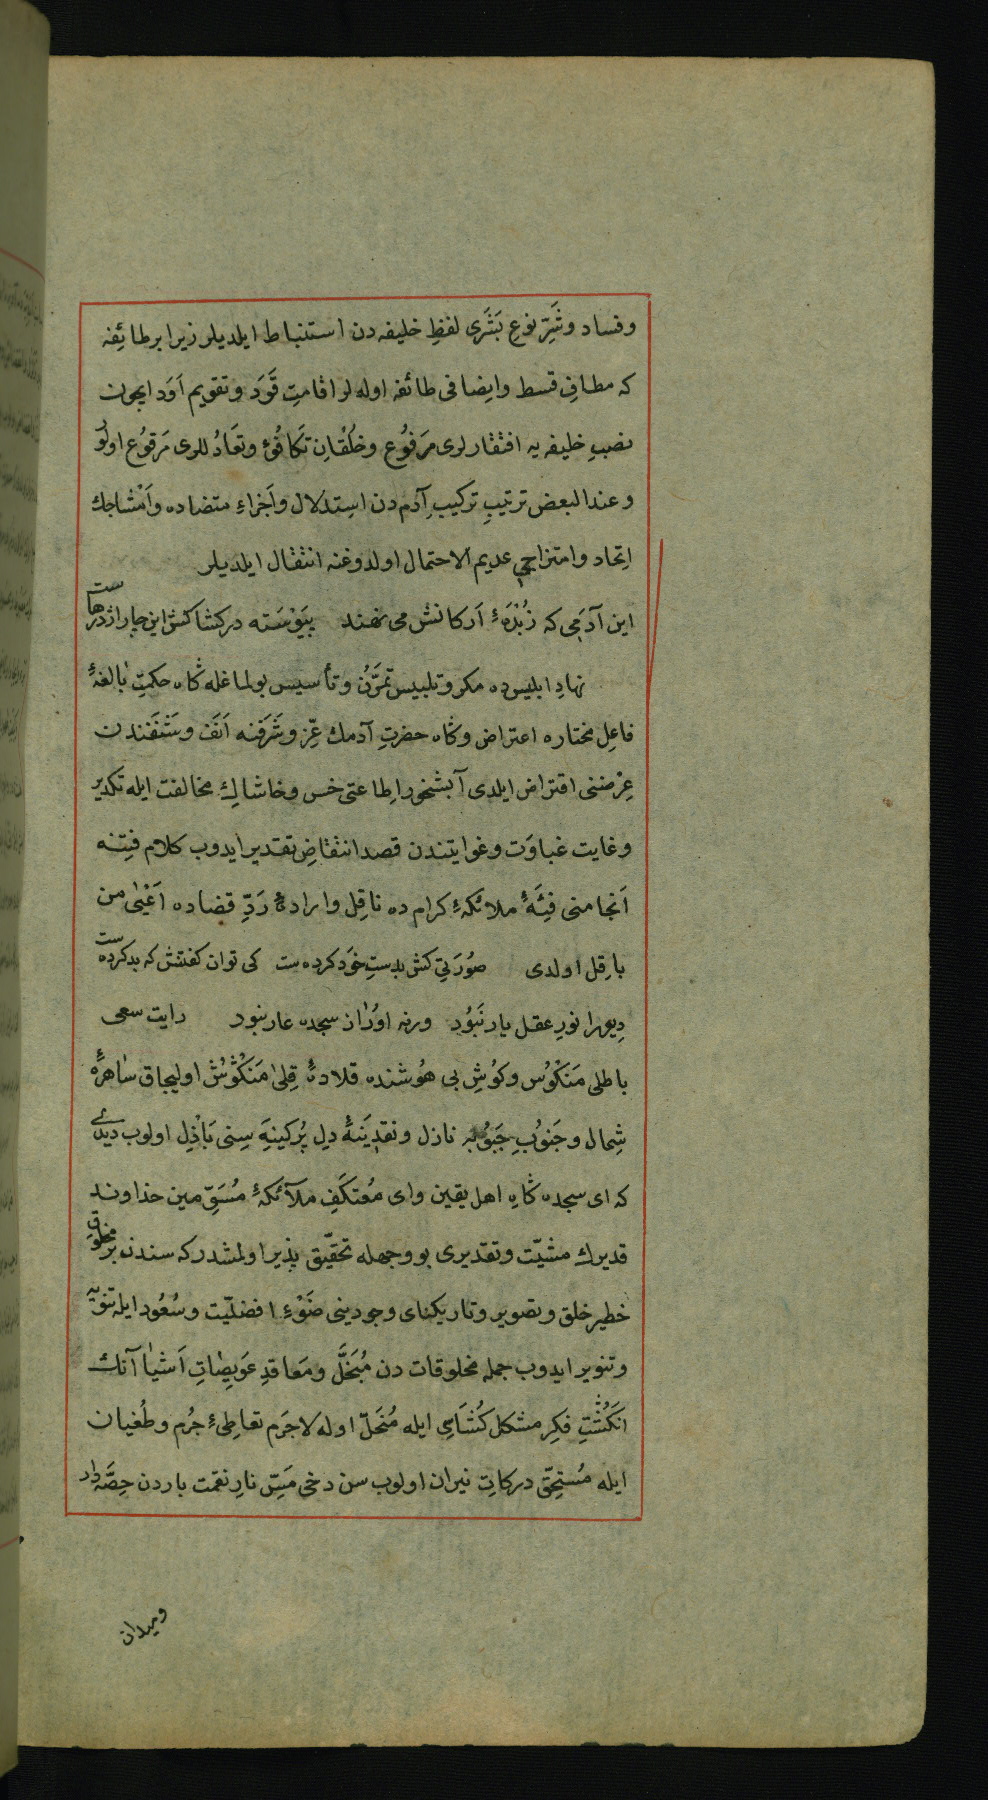 وفساد وشَرِّ نوعِ بَشَرى لفظِ خليفه دن استنباط ايلديلر زيرا بر طائِفه
كه مطافِ قسط وايضا فى طائفه اوله لر اقامتِ قَوَد وتقويم اَوَد ايچون
نصبِ خليفه يه افتقارلرى مَرفوُع وخلُقْانِ تَكافُؤ وتعَادُللرى مَرقوُع اولوُ
وعند البعض ترتيبِ تركيبِ آدم دن اسِتدلال واَجزاءِ متضاده واَمْشاجك
اتِحاد وامتزاجى عديم الاحتمال اولدوغنه انتقال ايلديلر
اين آدَمِى كه زُبْدَهٔ اَركانش مى نهند پيَوْسَته در كشاكش اين چار اژدرهاست
نهادِ ابليس ده مكر وتلبيس تمَرُّن وتأسيس بولماغله گاه حكمتِ بالغهٔ
فاعِل مختاره اعتراض وگاه حضرتِ آدمك عِّز وشَرَفنه اَنَف وشَنَفندن
عِرضنى اقتراض ايلدى آبشخور اِطاعتى خس وخاشاكِ مخالفت ايله تكدير
وغايت غباوَت وغوايتندن قصد انتقاضِ تقدير ايدوب كلام فتِنه
اَنجامنى فِئَهٔ ملائكهٔ كرام ده ناقِل وارادهٔ رَدِّ قضاده اَعْيٰى من
باقِل اولدى صوُرَتى كش بدستِ خَود كرده ست كى توان كفتش كه بد كرده ست
دِيورا نورِ عقل يار نَبوُد ورنه اورُا از سجده عار نبود رايت سعى
باطلى مَنَكْوُس وكوُشِ بى هوُشنده قلادهٔ قِلىٰ مَنَكْوُش اوليجاق ساهرهٔ
شِمال وجَنوُبِ جَبوُبه نازل ونقدِينَهٔ دِل پُركينهَ سِنى بَاذِل اولوب ديدى
كه اى سجده گاهِ اهل يقين واى مُعتكَفِ ملآئكهٔ مُسَوِّمين خداوند
قديرك مشيّت وتقديرى بو وجهله تحقيّق پذير اولمشدر كه سندن بر مخلوق
خطير خلق وتصوير وتاريكناى وجودينى ضَوْءِ افضليّت وسُعُود ايله تنويه
وتنوير ايدوب جمله مخلوقات دن مُبَخَلَّ ومَعاقدِ عَوَيصِاتِ اَشيٰا آنك
انكَُشْتِ فكِر مشكل كُشَاسِى ايله مُنحَلّ اوله لاجَرَم تعاطِىءِ جُرم وطُغيان
ايله مُستحِقّ دركاتِ نيران اولوب سن دخى مَسِّ نارِ نقمت باردن حِصَّه دار
وميدان